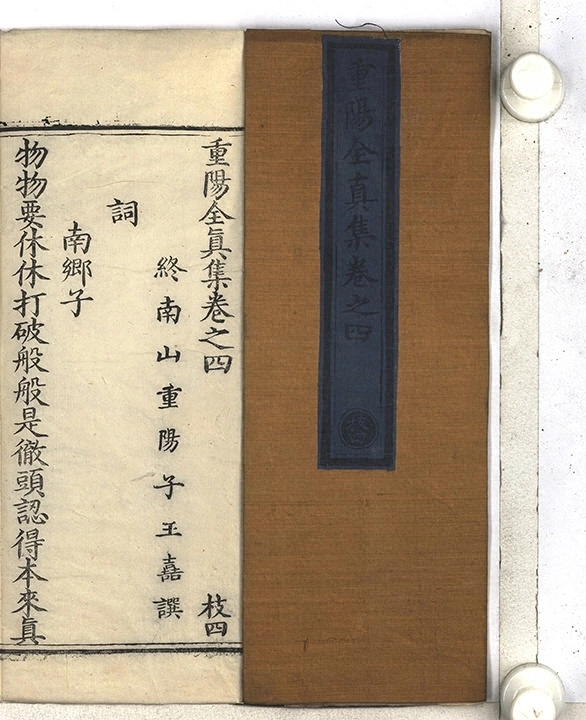 重陽全真集卷之四
重陽全眞集卷之四 枝四
終南山重陽子王嘉譔
詞
南鄉子
物物要休休打破般般是徹頭認得本來眞